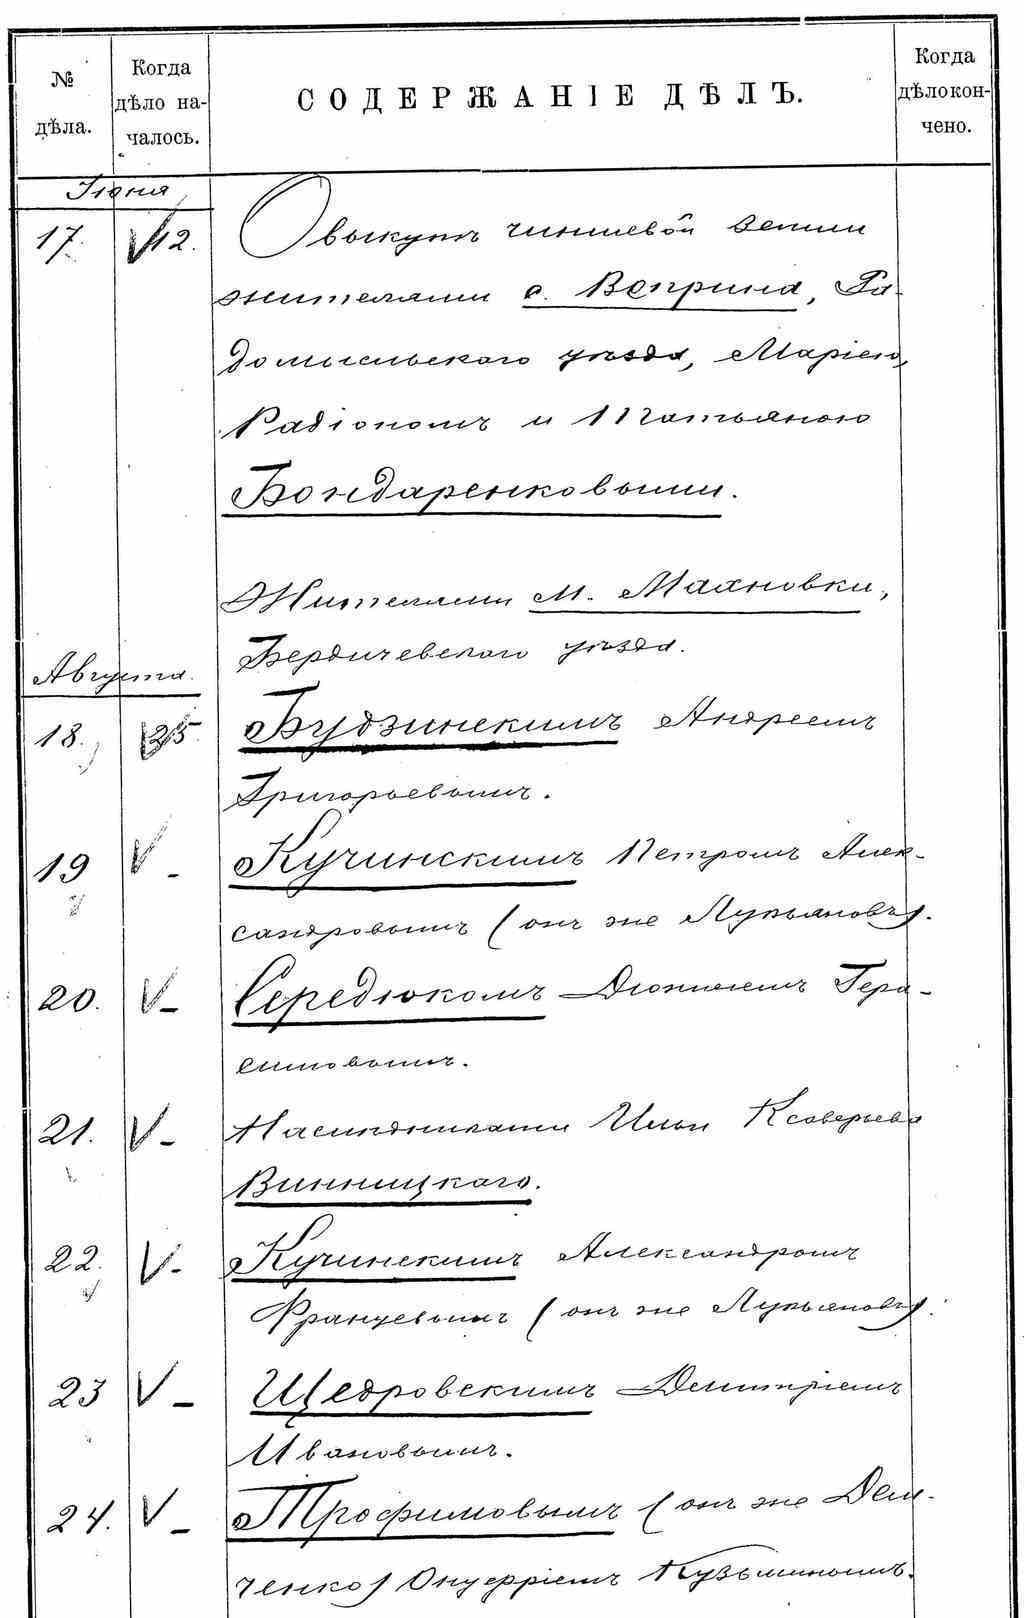 № дѣла.
Когда дѣло на-
чалось.
СОДЕРЖАНІЕ ДѢЛЪ.
Когда дѣло кон-
чено.
Іюня
17. 12. О выкупѣ чиншевой земли
жителями с. Веприна, Ра-
домысльскаго уѣзда, Маріею,
Радіономъ и Татьяною
Бондаренковыми.
Жителями м. Махновки,
Бердичевскаго уѣзда.
Августа.
18. 25. Будзинскимъ Андреемъ
Григорьевымъ.
19 V - Кучинскимъ Петромъ Алек-
сандровымъ (онъ же Лукьяновъ).
20. V - Середюкомъ Діонисіемъ Гера-
симовымъ.
21. V - Наслѣдниками Ильи Ксаверьева
Винницкаго.
22. V - Кучинскимъ Александромъ
Францевымъ (онъ же Лукьяновъ).
23 V - Щедровскимъ Дмитріемъ
Ивановымъ.
24. V - Трофимовымъ (онъ же Дем-
ченко) Онуфріемъ Кузьминымъ.